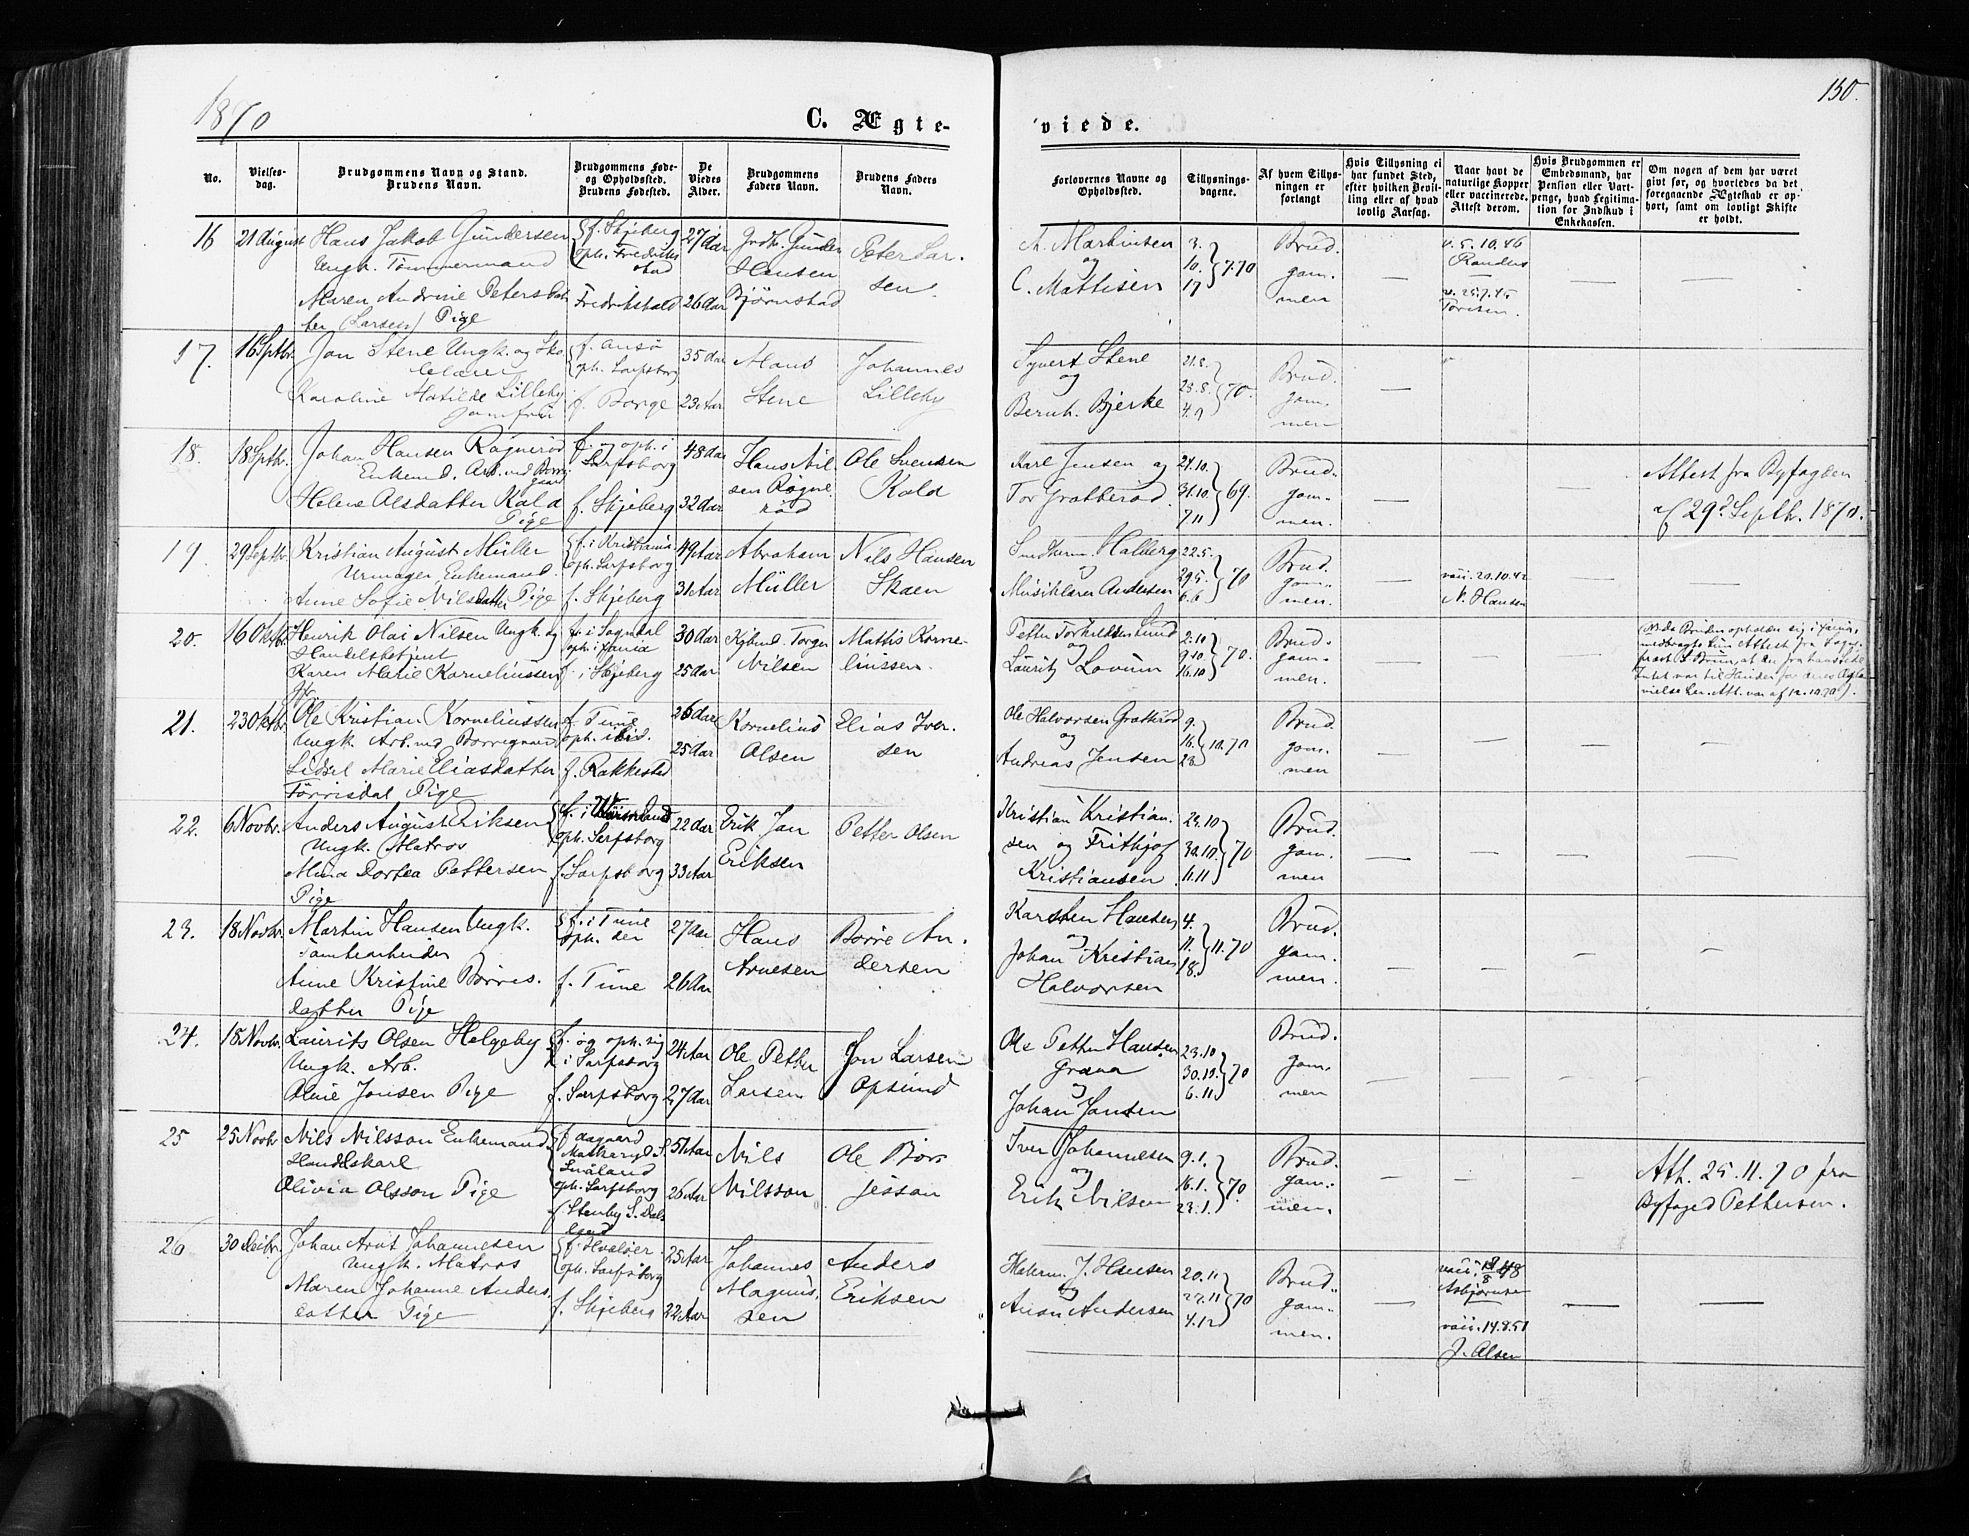 1870
C. Ægte-
viede.
150.
No.
Vielses-
dag.
Brudgommens Navn og Stand.
Brudens Navn.
Brudgommens Føde-
og Opholdssted.
Brudens Fødested.
De
Viedes
Alder.
Brudgommens
Faders Navn.
Brudens Faders
Navn.
Forlovernes Navne og
Opholdssted.
Tillysnings-
dagene.
Af hvem Tillys-
ningen er
forlangt
Hvis Tillysning ei
har fundet Sted,
efter hvilken Bevil-
ling eller af hvad
lovlig Aarsag.
Naar havt de
naturlige Kopper
eller vaccinerede.
Attest derom.
Hvis Brudgommen er
Embedsmand, har
Pension eller Vart-
penge, hvad Legitima-
tion for Indskud i
Enkekassen.
Om nogen af dem har været
givt før, og hvorledes da det
foregaaende Ægteskab er op-
hørt, samt om lovligt Skifte
er holdt.
16 21 August Hans Jakob Gundersen f. Skjeberg 27 Aar Grdb. Gunder Peter Lar-
Ungk. Tømmermand oph. Fredrik- stad Hansen sen.
Maren Andrine Petersdat- Fredrikshald 26 Aar Bjørnstad
ter (Larsen) Pige
A. Martinsen 3. Brud- v. 5.10.46
og 10. 7.70 gom- Randers
C. Mattisen 17 men v. 25.7.45
17. 16 Septbr. Jon Stene Ungk. og Sko- 35 Aar Mons Johannes
Karoline Matilde Lilleby oph. Sarpsborg
Jomfru f. Borge 23 Aar Stene Lilleby
Syvert Stene 21.8. Brud-
og 28.8. 70. gom-
Bernh. Bjerke 4.9 men
18. 18 Septbr. Johan Hansen Røgnerød f. og oph. i 48 Aar Hans Nil- Ole Svensen
Enkemd. Arb. ved Borre- gaard Sarpsborg sen Røgne- Kald
Helene Olsdatter Kald f. Skjeberg 32 Aar rød
Pige
Karl Jensen og 24.10. Brud- Attest fra Byfogden
Tor Gratterød 31.10. 69. gom- af 29d Septbr. 1870.
7.11 men.
19. 29 Septbr. Kristian August Müller f. i Kristiania 49 Aar Abraham Nils Hansen
Urmager, Enkemand. oph. Sarpsborg Müller Skaen
Anne Sofie Nilsdatter Pige f. Skjeberg 31 Aar
Halberg 22.5. Brud-
og 29.5. 70 gom- vacc. 20.10.42
Musiklærer Andersen 6.6 men. N. Hansen
20. 16 Oktbr. Henrik Olai Nilsen Ungk. og f. i Sogndal 30 Aar Kjbmd. Torger Mattis Korne-
Handelsbetjent Nilsen liussen.
Karen Marie Korneliussen f. i Skjeberg 25 Aar
Jfr.
Petter Torkildsen Lund 2.10 Brud-
og 9.10. 70. gom-
Lauritz Lovum 16.10 men.
21. 23 Oktbr. Ole Kristian Korneliussen f. Tune 26 Aar Kornelius Elias Iver-
Ungk. Arb. ved Borregaard oph. ibid. Olsen sen
Lidsel Marie Eliasdatter f. Rakkestad 25 Aar
Torrisdal Pige
Ole Halvorsen Gratterød 9. Brud-
og 16. 10.70 gom-
Andreas Jensen 23 men
22. 6 Novbr. Anders August Eriksen f. i Wärmland 22 Aar Erik Jan Petter Olsen
Ungk. Matros oph. Sarpsborg Eriksen
Mina Dortea Pettersen f. Sarpsborg 33 Aar
Pige
Kristian Kristian- 23.10 Brud-
sen og Frithjof 30.10. 70 gom-
Kristiansen 6.11 men
23. 18 Novbr. Martin Hansen Ungk. f. i Tune 27 Aar Hans Børre An-
Tomtearbeider oph. der Arnesen dersen
Anne Kristine Børres- f. Tune 26 Aar
datter Pige
Karsten Hansen 4. Brud-
og 11. 11.70 gom-
Johan Kristian 18. men.
Halvorsen
24. 18 Novbr. Laurits Olsen Helgeby f. og oph. sig 24 Aar Ole Petter Jon Larsen
Ungk. Arb. i Sarpsborg Larsen Opsund
Oline Jonsen Pige f. Sarpsborg 27 Aar
Ole Petter Hansen 23.10 Brud-
Grava 30.10. 70 gom-
og 6.11 men
Johan Jonsen
25 25 Novbr. Nils Nilsson Enkemand 51 Aar Nils Ole Bør-
Handelskarl Småland Nilsson jesson
Olivia Olsson Pige oph. Sarpsborg 26 Aar
f. Stenby S. Dals-
land
Iver Johannesen 9.1. Brud- Att. 25.11.70 fra
og 16.1. 70 gom- Byfoged Pettersen.
Erik Nilsen 23.1. men.
26 30 Decbr. Johan Arnt Johannesen f. Hvaløer 25 Aar Johannes Anders
Ungk. Matros oph. Sarpsborg Magnus- Eriksen
Maren Johanne Anders- f. Skjeberg 22 Aar sen
datter Pige
J. Hansen 20.11 Brud-
og 27.11 70 gom- Asbjørnsen
Anon Andersen 4.12 men. vacc. 14.8.51
J. Olsen